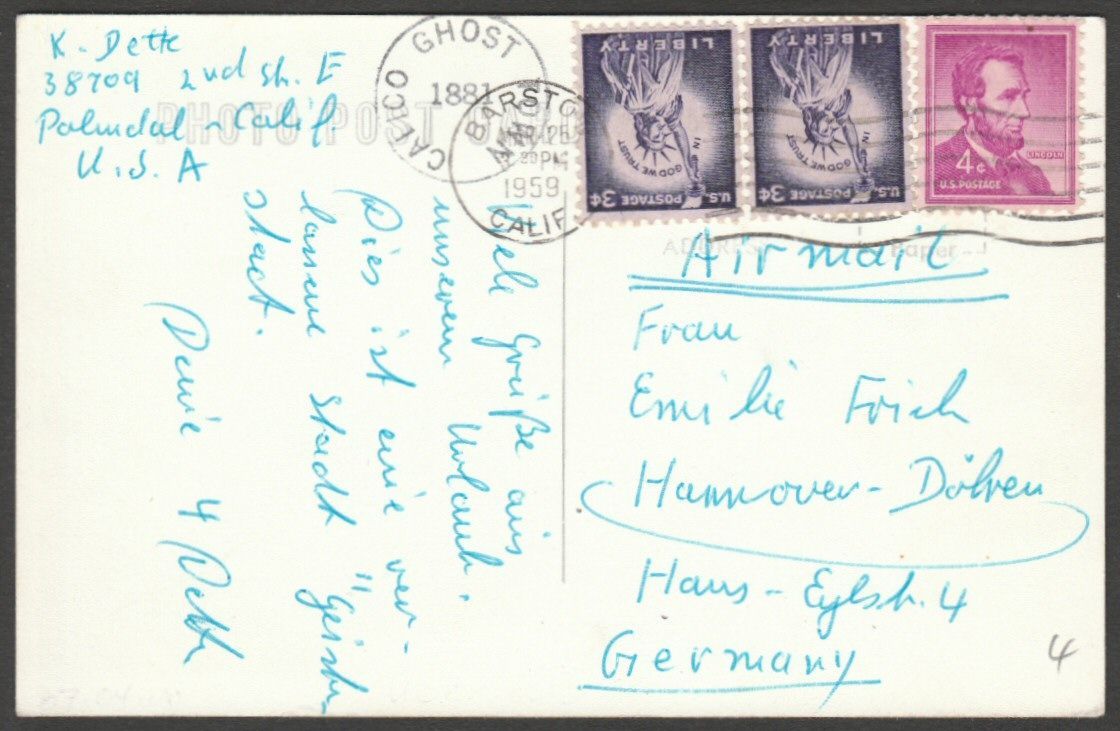 K. Dette
38709 2nd St. E
Palmdal - Calif.
U.S.A
PHOTO POST CARD
CALICO GHOST
1881
BARSTOW
1959
CALIF
LIBERTY
IN GOD WE TRUST
U.S. POSTAGE 3¢
LIBERTY
IN GOD WE TRUST
U.S. POSTAGE 3¢
4¢
LINCOLN
U.S. POSTAGE
ADDRESS
Paper
Viele Grüße aus
unserem Urlaub.
Dies ist eine ver-
lassene Stadt "Geister
stadt.
Deine 4 Dette
Airmail
Frau
Emilie Frich
Hannover - Döhren
Hans - Eylstr. 4
Germany
4